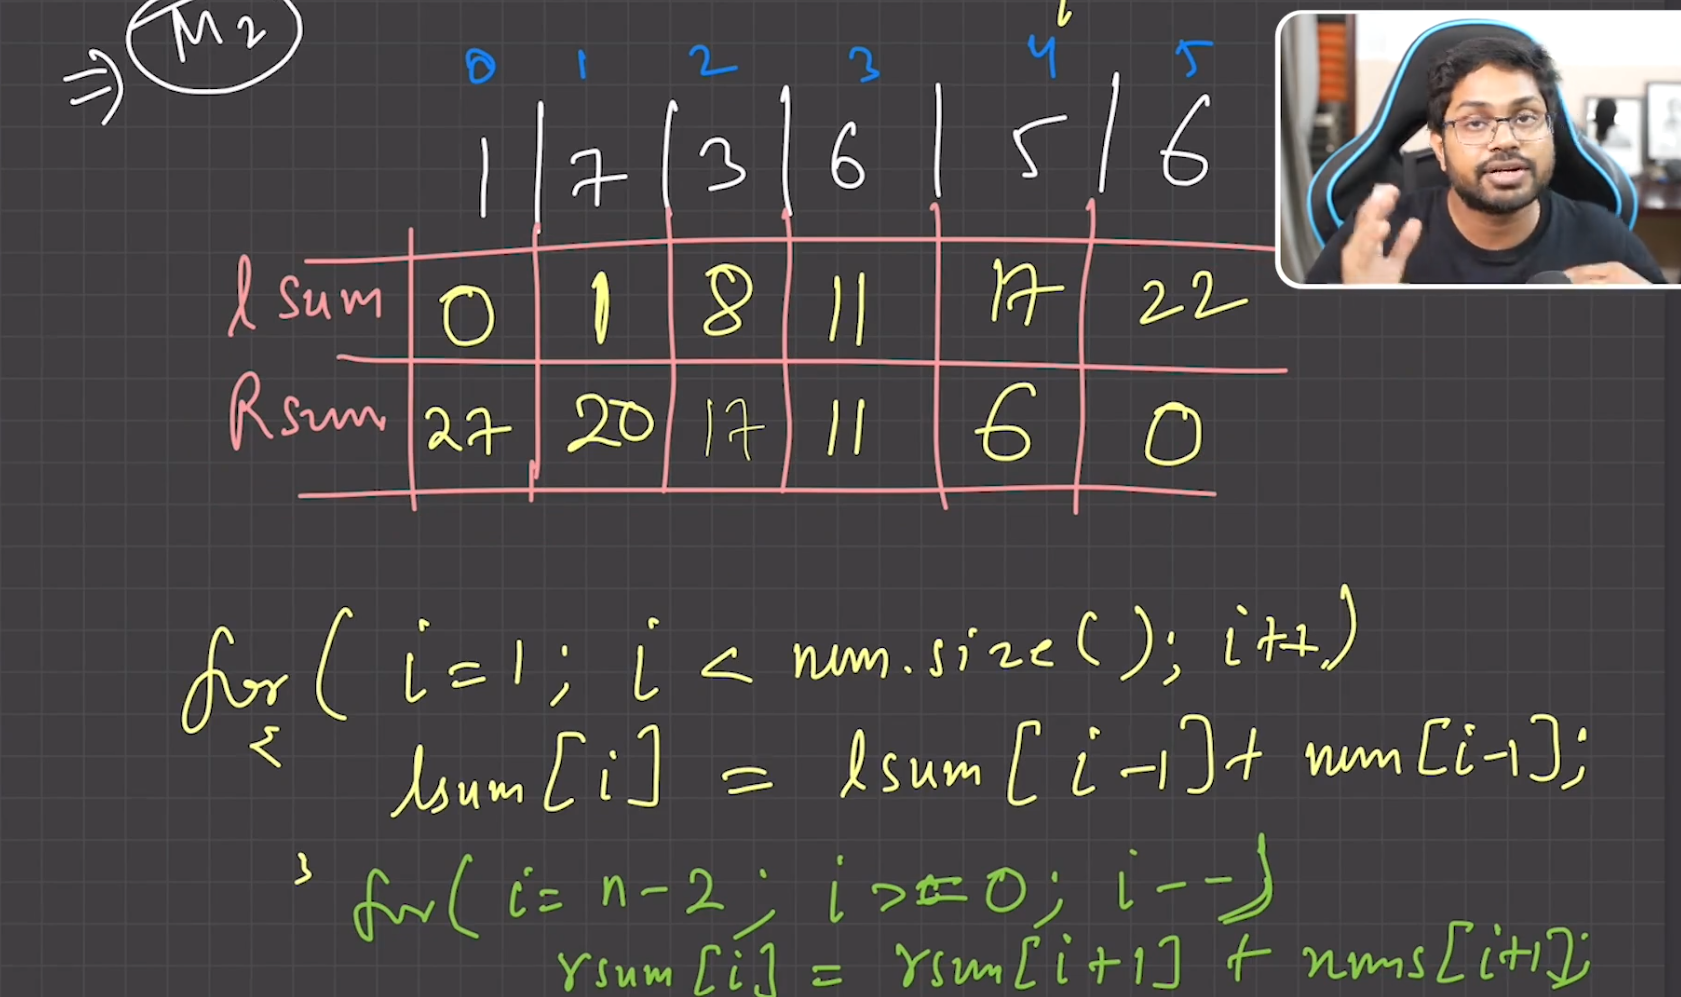 ⇒ M2
i
0 1 2 3 4 5
1 | 7 | 3 | 6 | 5 | 6
lsum 0 1 8 11 17 22
Rsum 27 20 17 11 6 0
for( i=1; i < num.size(); i++)
{
lsum[i] = lsum[i-1]+ num[i-1];
}
for( i= n-2; i>=0; i--)
rsum[i] = rsum[i+1] + nums[i+1];